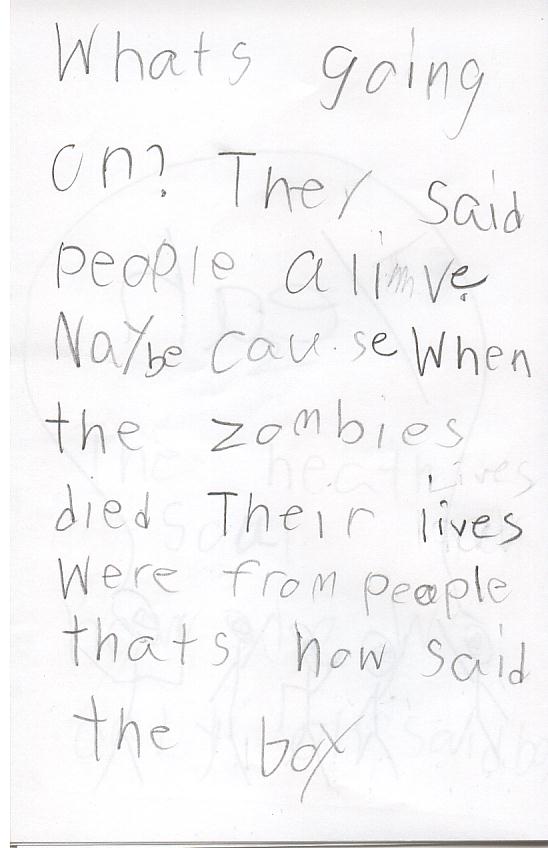 Whats going
on? They said
people alimve.
Naybe cause When
the zombies
died Their lives
Were from people
thats how said
the box